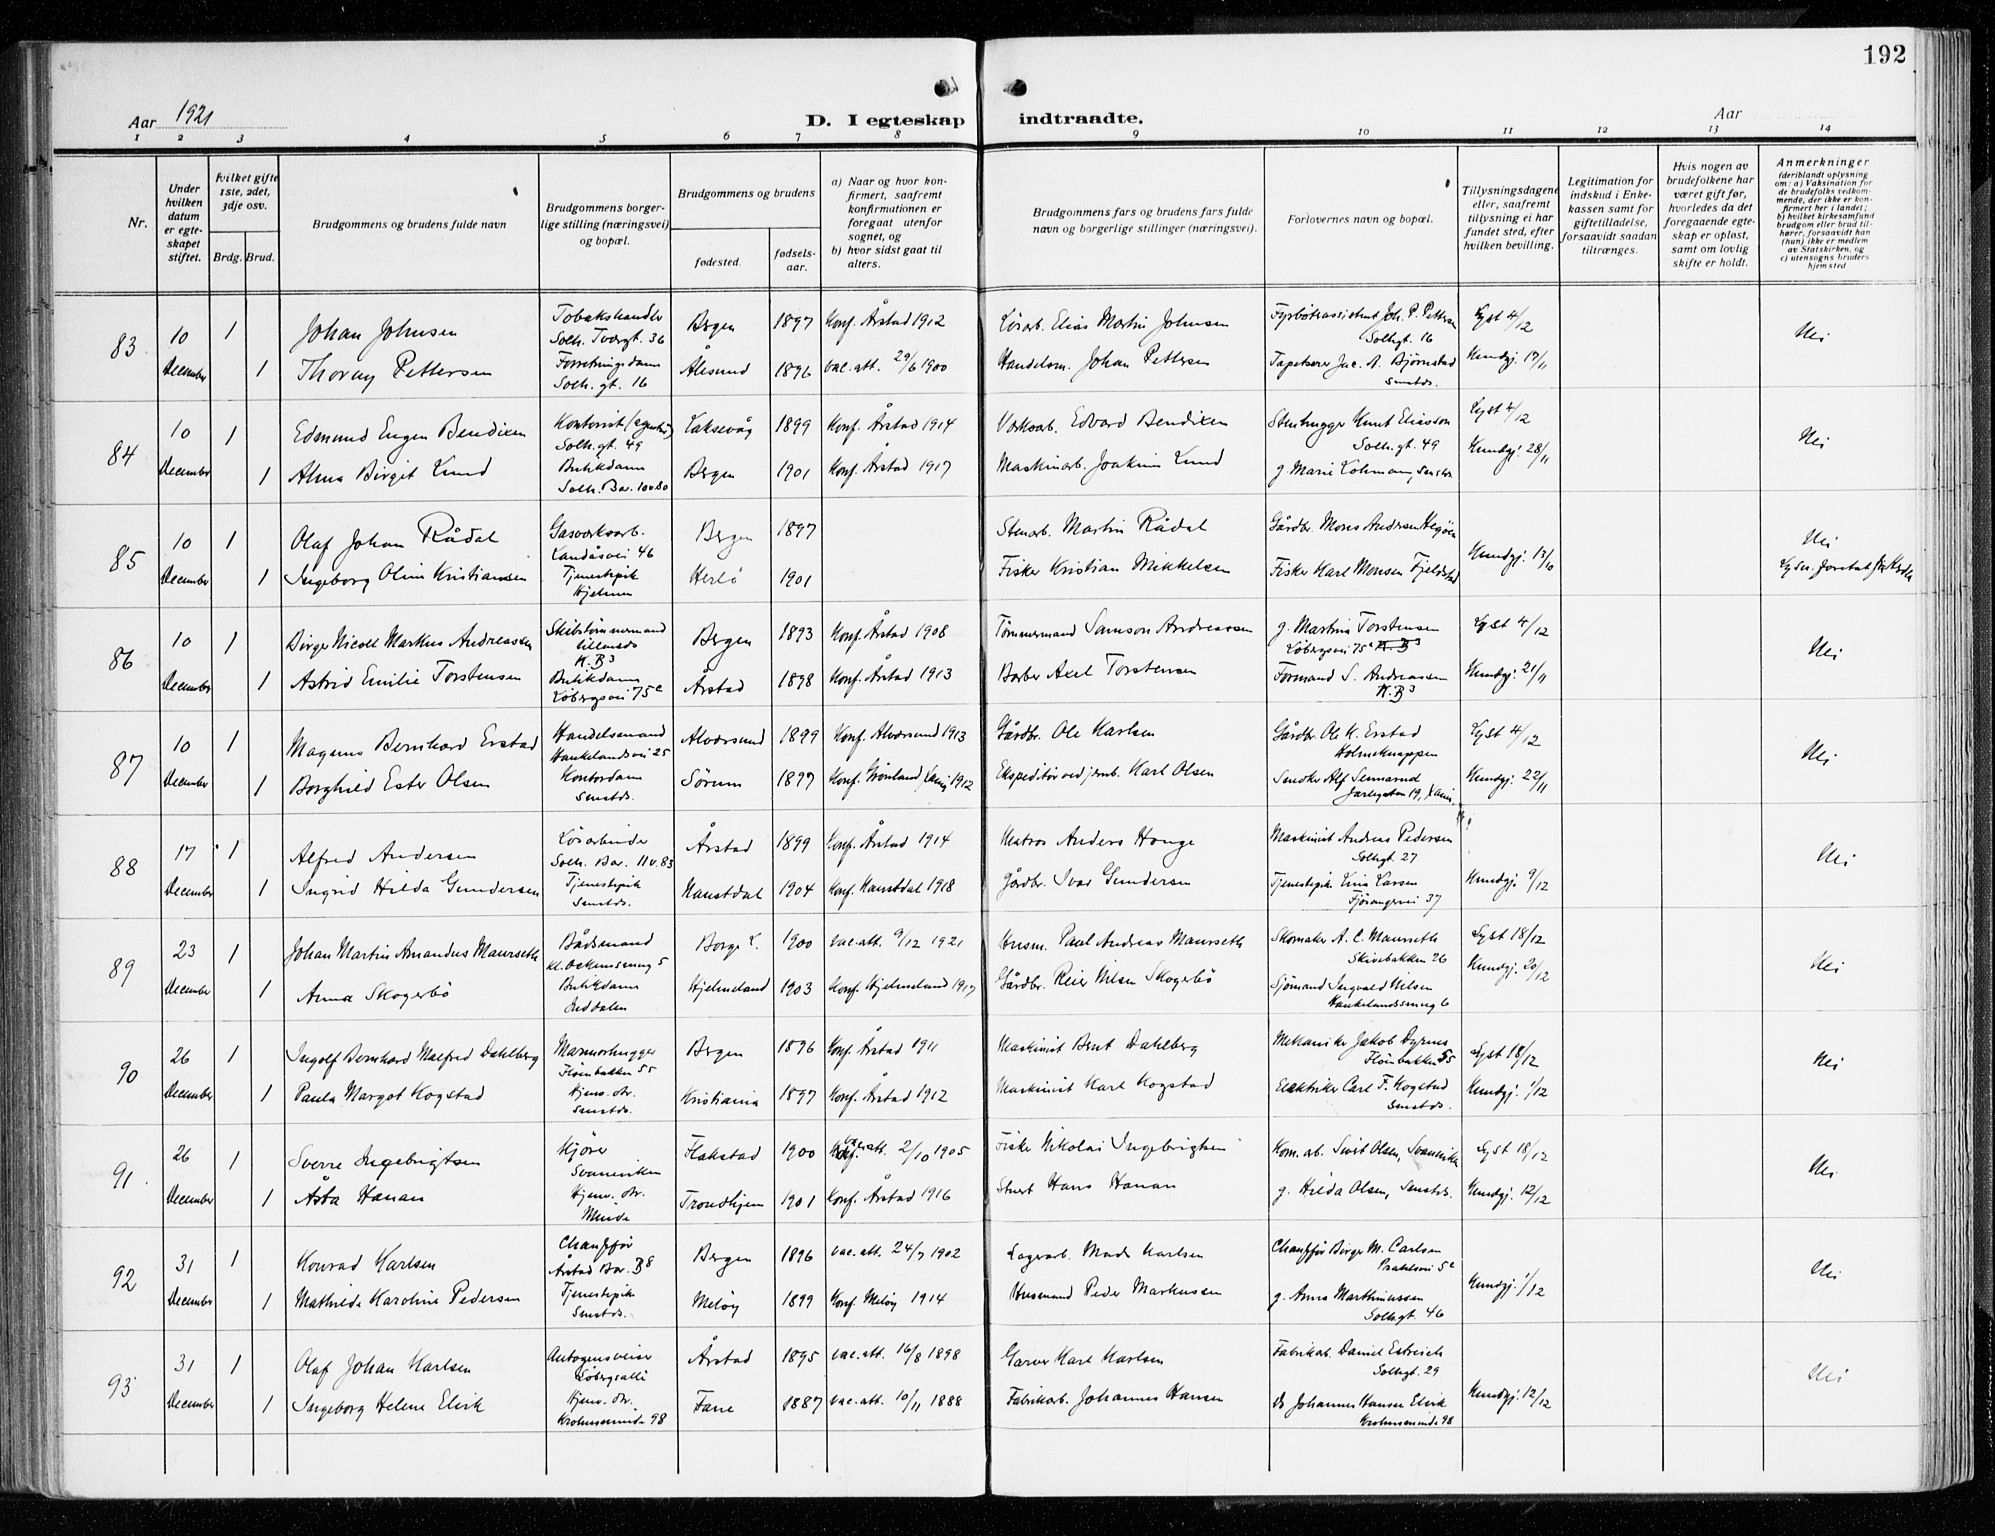 192
Aar 1921
D. I egteskap indtraadte.
Aar
1 2 3 4 5 6 7 8 9 10 11 12 13 14
Nr.
Under hvilken datum er egteskapet stiftet.
Hvilket gifte 1ste, 2det, 3dje osv.
Brdg. Brud.
Brudgommens og brudens fulde navn
Brudgommens borgerlige stilling (næringsvei) og bopæl.
Brudgommens og brudens
fødested.
fødselsaar.
a) Naar og hvor konfirmert, saafremt konfirmationen er foregaat utenfor sognet, og
b) hvor sidst gaat til alters.
Brudgommens fars og brudens fars fulde navn og borgerlige stillinger (næringsvei).
Forlovernes navn og bopæl.
Tillysningsdagene eller, saafremt tillysning ei har fundet sted, efter hvilken bevilling.
Legitimation for indskud i Enkekassen samt for giftetilladelse, forsaavidt saadan tiltrænges.
Hvis nogen av brudefolkene har været gift før, hvorledes da det foregaaende egteskap er opløst, samt om lovlig skifte er holdt.
Anmerkninger
(deriblandt oplysning om: a) Vaksination for de brudefolks vedkommende, der ikke er konfirmert her i landet; b) hvilket kirkesamfund brudgom eller brud tilhører, forsaavidt han (hun) ikke er medlem av Statskirken, og c) utensogns bruders hjemsted
83 10 December 1 Johan Johnsen Tobakshandler Solh. Tværgt. 36 Bergen 1897 Konf. Årstad 1912 Løsarb. Elias Martin Johnsen Fyrbøterassistent Joh. P. Pettersen Solhgt. 16 Lyst 4/12 Nei
1 Thorny Pettersen Forretningsdame Solh. gt. 16 Ålesund 1896 vac. att. 29/6 1900 Handelsm. Johan Pettersen Tapetserer Jac. A. Bjørnstad Smstds. Kundgj. 17/11
84 10 December 1 Edmund Eugen Bendixen Kontorist (agentur) Solh. gt. 49 Laksevåg 1899 Konf. Årstad 1914 Værksarb. Edvard Bendixen Stenhugger Knut Eliasson Solh. gt. 49 Lyst 4/12 Nei
1 Alma Birgit Lund Butikdame Solh. Bar. 10 v. 80 Bergen 1901 Konf. Årstad 1917 Maskinarb. Joakim Lund g. Marie Lohmann, Smstds Kundgj. 28/11
85 10 December 1 Olaf Johan Rådal Gasverksarb. Landåsvei 46 Bergen 1897 Stenarb. Martin Rådal Gårdbr. Mons Andersen Hegøen Kundgj. 13/10 Nei
1 Ingeborg Oline Kristiansen Tjenestepik Hjelmen Herlö 1901 Fisker Kristian Mikkelsen Fisker Karl Monsen Fjeldstad
86 10 December 1 Birger Nicoll Markus Andreassen Skibstømmermand K. B3 Bergen 1893 Konf. Årstad 1908 Tømmermand Samson Andreassen g. Martina Torstensen Løbergsvei 75c Lyst 4/12 Nei
1 Astrid Emilie Torstensen Butikdame Løbergsvei 75c Årstad 1898 Konf. Årstad 1913 Barber Axel Torstensen Formand S. Andreassen K. B3 Kundgj. 21/11
87 10 December 1 Magnus Bernhard Erstad Handelsmand Haukelandsvei 25 Alversund 1899 Konf. Alversund 1913 Gårdbr. Ole Karlsen Gårdbr Ole K. Erstad Holmeknappen Lyst 4/12 Nei
1 Borghild Ester Olsen Kontordame Smstds. Sörum 1897 Konf. Grønland 1912 Ekspeditør ved jernb. Karl Olsen Smeder Alf Jarlegaten 19, Kania. Kundgj. 22/11
88 17 December 1 Alfred Andersen Løsarbeider Solh. Bar. 11 v. 83 Årstad 1899 Konf. Årstad 1914 Matros Anders Hauge Maskinist Andreas Pedersen Solhgt. 27 Nei
1 Ingrid Hilda Gundersen Tjenestepik Smstds. Naustdal 1904 Konf. Naustdal 1918 Gårdbr. Ivar Gundersen Tjenestepik Lina Larsen Fjøsangervei 37 Kundgj. 9/12
89 23 December 1 Johan Martin Amandus Maurseth Bådsmand 5 Borge L. 1900 vac. att. 9/12 1921 Husm. Paul Andreas Maurseth Skomaker A. C. Maurseth Skivebakken 26 Lyst 18/12 Nei
1 Anna Skogerbö Butikdame Inddalen Hjelmeland 1903 Konf. Hjelmeland 1917 Gårdbr. Reier Nilsen Skogerbö Sjömand Ingvald Nilsen Haukelandssmug 6 Kundgj. 20/12
90 26 December 1 Ingolf Bernhard Malfred Dahlberg Marmorhugger Fløienbakken 55 Bergen 1896 Konf. Årstad 1911 Maskinist Bent Dahlberg Mekaniker Jakob Dyrnes Fløienbakken 55 Lyst 18/12 Nei
1 Paula Margot Kogstad Hjemv. dtr. Smstds. Kristiania 1897 Konf. Årstad 1912 Maskinist Karl Kogstad Elektriker Carl F. Kogstad Smstds. Kundgj. 1/12
91 26 December 1 Sverre Ingebrigtsen Kjører Svaneviken Flakstad 1900 vac. att. 2/10 1905 Fisker Nikolai Ingebrigtsen Kom. ab. Sivert Olsen, Svaneviken Lyst 18/12 Nei
1 Åsta Hanan Hjemv. dtr. Minde Trondhjem 1901 Konf. Årstad 1916 Stuert Hans Hanan g. Hilda Olsen, Smstds. Kundgj. 12/12
92 31 December 1 Konrad Karlsen Chauffør Årstad Bar. B8 Bergen 1896 vac. att. 24/7 1902 Lagerarb. Mads Karlsen Chauffør Birger M. Carlsen 5c Kundgj. 1/12 Nei
1 Mathilde Karoline Pedersen Tjenestepik Smstds. Meløy 1899 Konf. Meløy 1914 Husmand Peder Markussen g. Anna Marthinussen Solh.gt. 46
93 31 December 1 Olaf Johan Karlsen Autogensveiser Løbergsalle Årstad 1895 vac. att. 16/8 1898 Garver Karl Karlsen Fabrikab. Daniel Estreich Solhgt. 29 Nei
1 Ingeborg Helene Elvik Hjemv. dtr. Kronhusminde 98 Fane 1887 vac. att. 10/11 1888 Fabrikarb. Johannes Hansen Johannes Hansen Elvik 98 Kundgj. 12/12